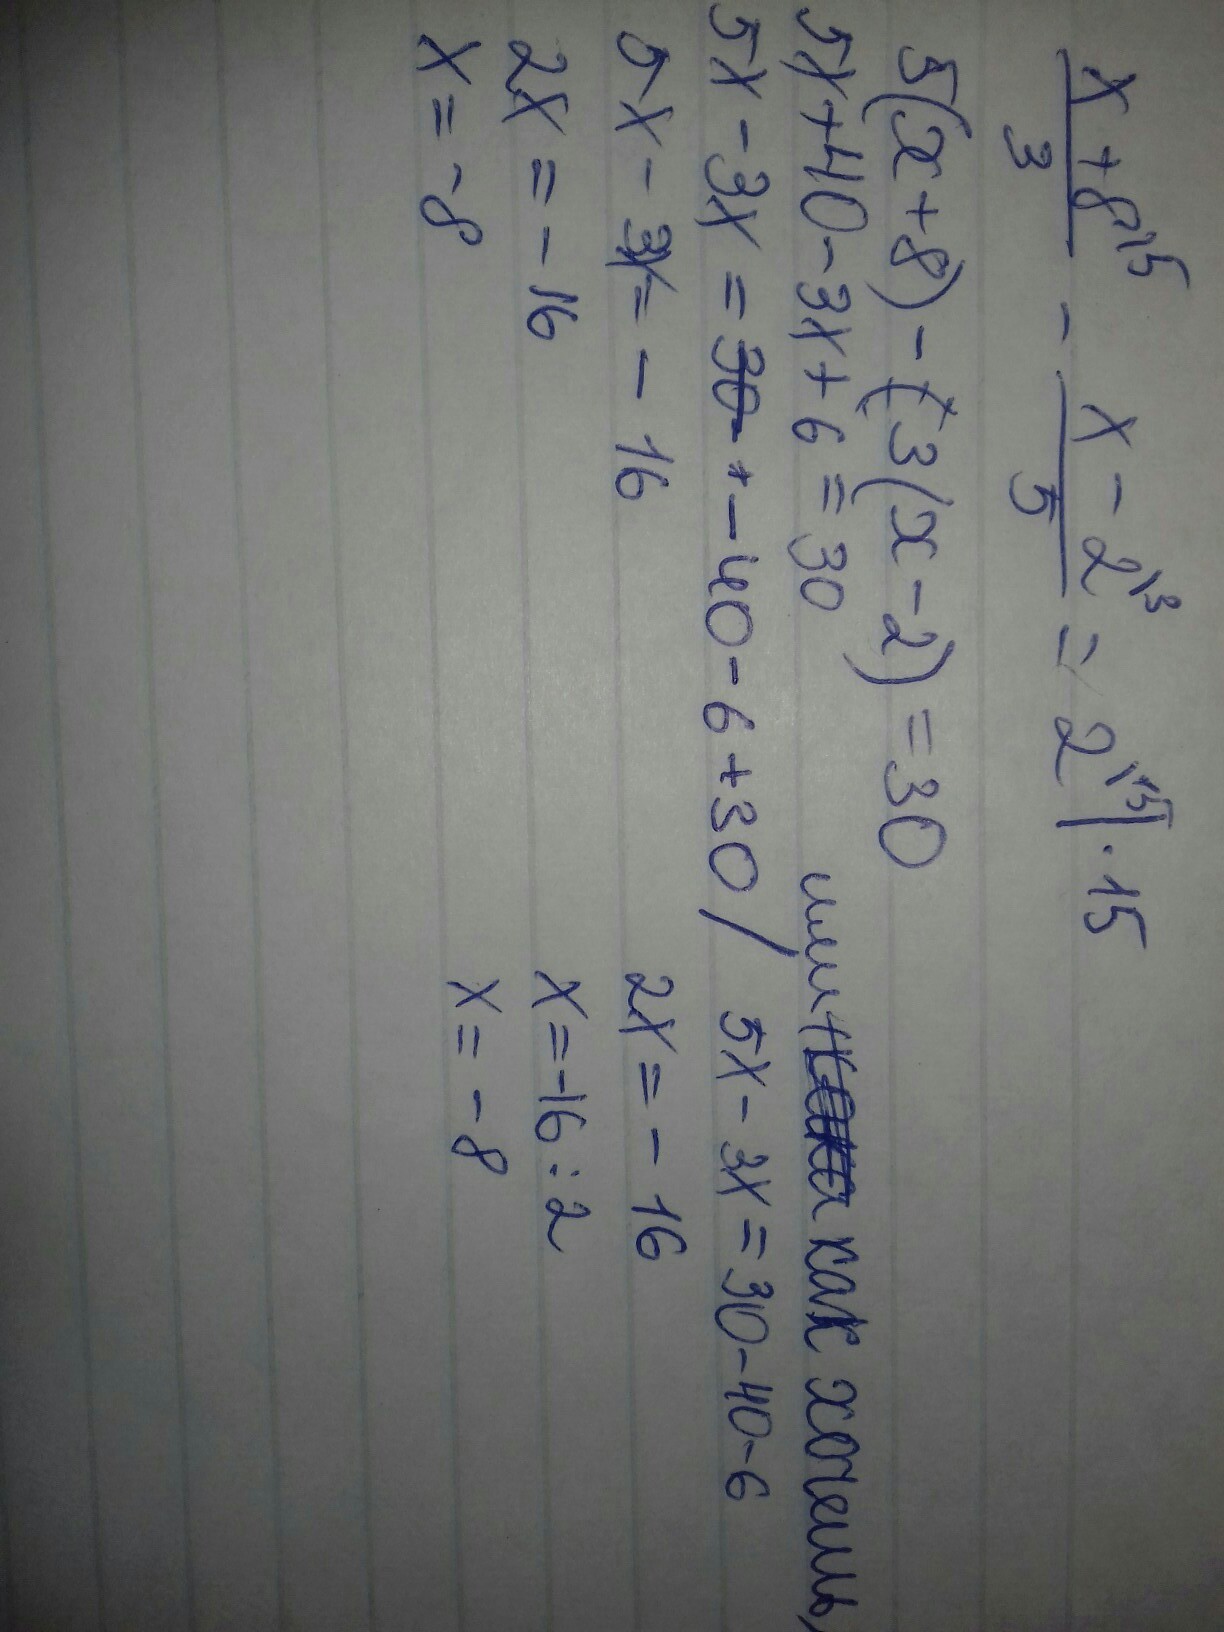 x+8\5 / 3 - x-2\3 / 5 = 2\15 | · 15
5(x+8) - (3(x-2) = 30
5x+40-3x+6=30 или как хочешь,
5x-3x = 30 + -40-6+30 / 5x-3x=30-40-6
5x-3x=-16 2x=-16
2x=-16 x=-16:2
x=-8 x=-8